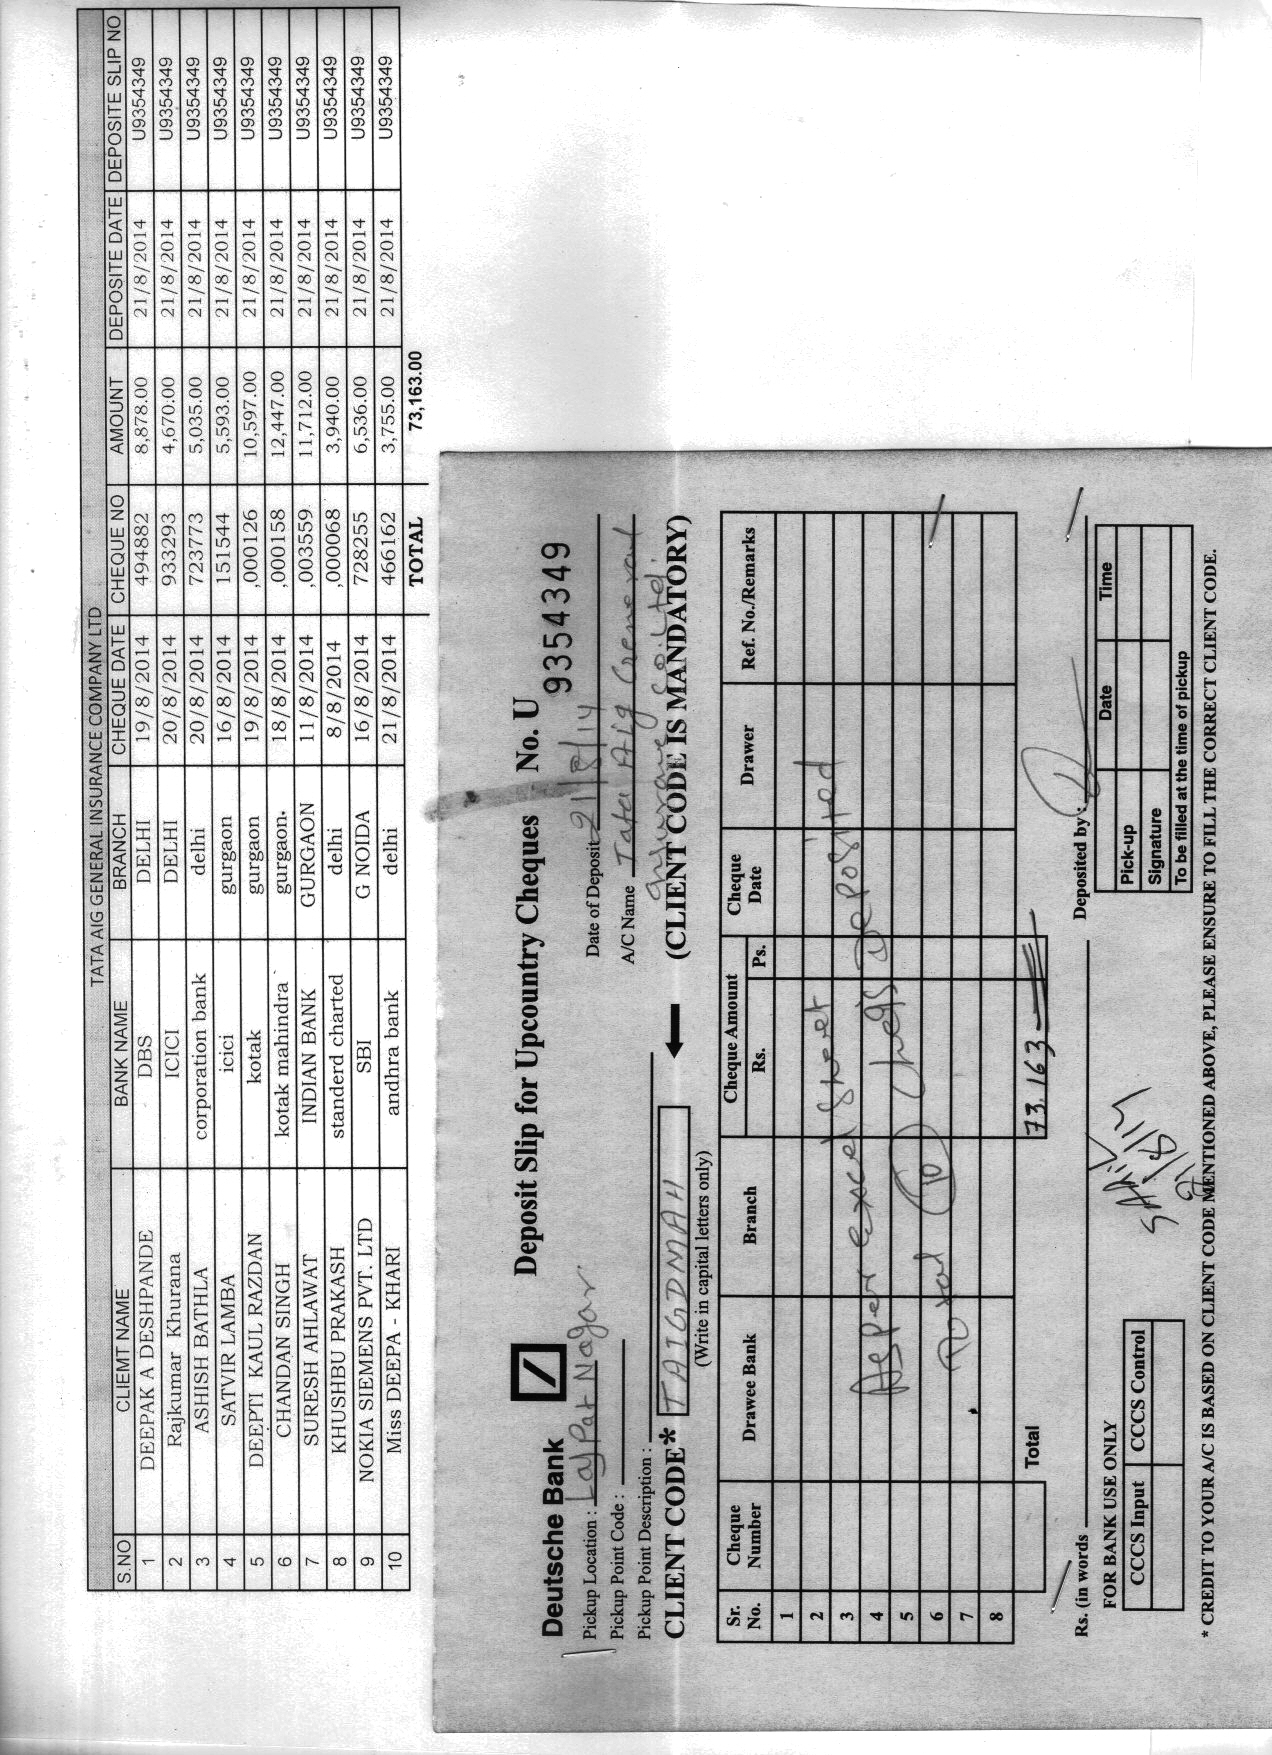 TATA AIG GENERAL INSURANCE COMPANY LTD
S.NO CLIEMT NAME BANK NAME BRANCH CHEQUE DATE CHEQUE NO AMOUNT DEPOSITE DATE DEPOSITE SLIP NO
1 DEEPAK A DESHPANDE DBS DELHI 19/8/2014 494882 8,878.00 21/8/2014 U9354349
2 Rajkumar Khurana ICICI DELHI 20/8/2014 933293 4,670.00 21/8/2014 U9354349
3 ASHISH BATHLA corporation bank delhi 20/8/2014 723773 5,035.00 21/8/2014 U9354349
4 SATVIR LAMBA icici gurgaon 16/8/2014 151544 5,593.00 21/8/2014 U9354349
5 DEEPTI KAUL RAZDAN kotak gurgaon 19/8/2014 ,000126 10,597.00 21/8/2014 U9354349
6 CHANDAN SINGH kotak mahindra gurgaon. 18/8/2014 ,000158 12,447.00 21/8/2014 U9354349
7 SURESH AHLAWAT INDIAN BANK GURGAON 11/8/2014 ,003559 11,712.00 21/8/2014 U9354349
8 KHUSHBU PRAKASH standerd charted delhi 8/8/2014 ,000068 3,940.00 21/8/2014 U9354349
9 NOKIA SIEMENS PVT. LTD SBI G NOIDA 16/8/2014 728255 6,536.00 21/8/2014 U9354349
10 Miss DEEPA - KHARI andhra bank delhi 21/8/2014 466162 3,755.00 21/8/2014 U9354349
TOTAL 73,163.00
Deutsche Bank Deposit Slip for Upcountry Cheques No. U 9354349
Pickup Location : Lajpat Nagar. Date of Deposit 21/8/14
Pickup Point Code : A/C Name Tata AIG General
Pickup Point Description : Insurance Co. Ltd.
CLIENT CODE* TAIGDMAH (CLIENT CODE IS MANDATORY)
(Write in capital letters only)
Sr. No. Cheque Number Drawee Bank Branch Cheque Amount Rs. Ps. Cheque Date Drawer Ref. No./Remarks
1
2
3
4
5
6
7
8
As per Excel Sheet
Total 10 Chq's Deposited
Total 73,163
Rs. (in words Deposited by :
FOR BANK USE ONLY
CCCS Input CCCS Control
21/8/14
Pick-up Date Time
Signature
To be filled at the time of pickup
* CREDIT TO YOUR A/C IS BASED ON CLIENT CODE MENTIONED ABOVE, PLEASE ENSURE TO FILL THE CORRECT CLIENT CODE.